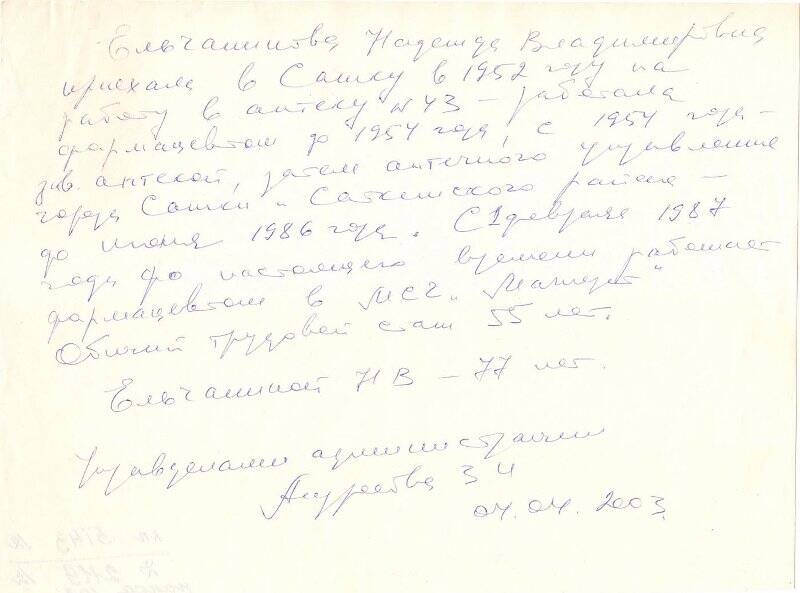 Ельчанинова Надежда Владимировна
приехала в Сатку в 1952 году на
работу в аптеку №43 – работала
фармацевтом до 1954 года, с 1954 года –
зав. аптекой, затем аптечного управления
города Сатки и Саткинского района –
до июня 1986 года. С 1 февраля 1987
года до настоящего времени работает
фармацевтом в МСЧ „Магнезит“
Общий трудовой стаж 55 лет.
Ельчаниной Н В – 77 лет.
Управделами администрации
З И
04.04.2003